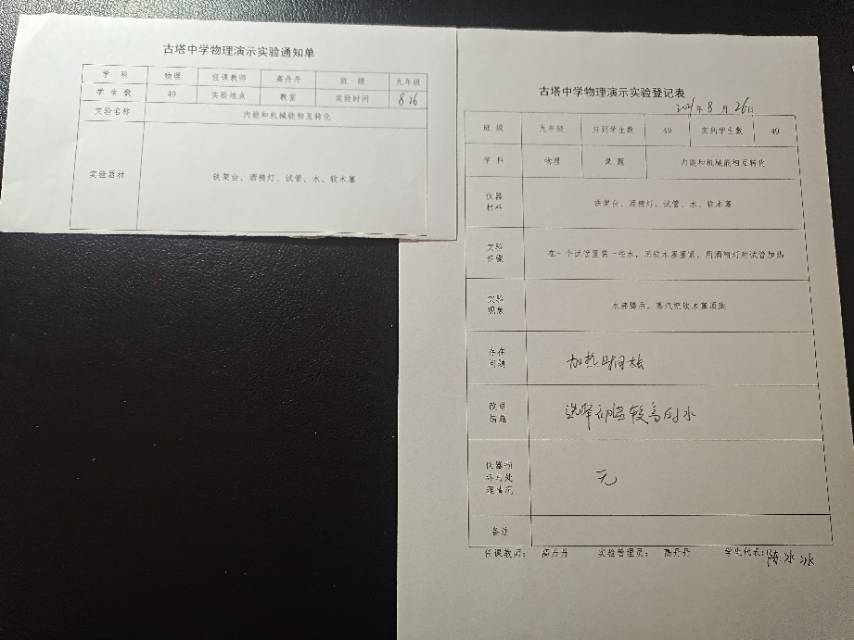 古塔中学物理演示实验通知单
学 科 物理 任课教师 高丹丹 班 级 九年级
学 生 数 49 实验地点 教室 实验时间 8.26
实验名称 内能和机械能相互转化
实验器材 铁架台、酒精灯、试管、水、软木塞
古塔中学物理演示实验登记表
2021年 8 月 26日
班 级 九年级 应到学生数 49 实到学生数 49
学 科 物理 课 题 内能和机械能相互转化
仪器
材料 铁架台、酒精灯、试管、水、软木塞
实验
步骤 在一个试管里装一些水,用软木塞塞紧,用酒精灯对试管加热
实验
现象 水沸腾后,蒸汽把软木塞顶出
存在
问题 加热时间长
改进
措施 选择初温较高的水
仪器损
坏与处
理情况 无
备注
任课教师: 高丹丹 实验管理员: 高丹丹 学生代表: 陈冰冰